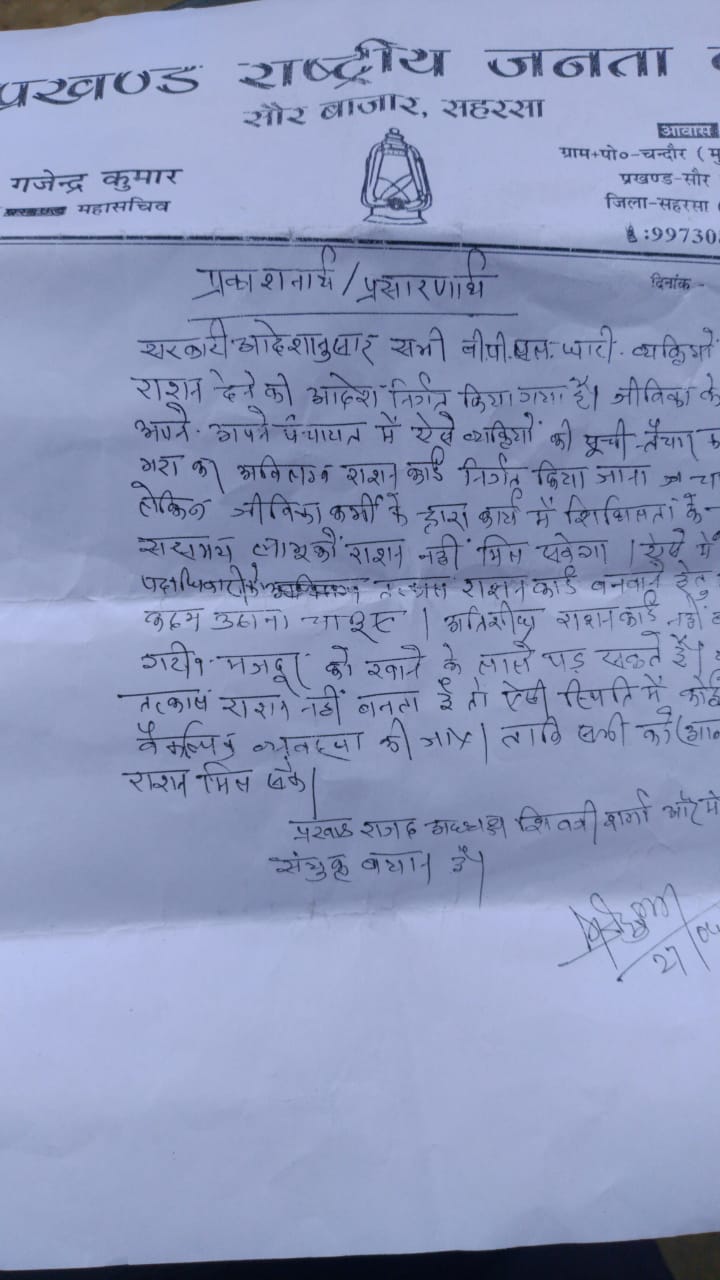 प्रखण्ड राष्ट्रीय जनता
सौर बाजार, सहरसा
आवास
ग्राम+पो०-चन्दौर (मु
गजेन्द्र कुमार
प्रखण्ड-सौर
महासचिव
जिला-सहरसा (
:99730
दिनांक -
प्रकाशनार्थ/प्रसारणार्थ
सरकारी आदेशानुसार सभी बी.पी.एल. धारी व्यक्तियों
राशन देने को आदेश निर्गत किया गया है। जीविका के
अपने-अपने पंचायत में ऐसे व्यक्तियों की सूची तैयार क
अविलम्ब राशन कार्ड निर्गत किया जाना
लेकिन जीविका कर्मी के द्वारा कार्य में शिथिलता के
राशन नहीं मिल सकेगा। ऐसे में
राशन कार्ड बनवाने हेतु
कदम उठाना चाहिए। अतिशीघ्र राशन कार्ड नहीं
गरीब मजदूर को खाने के लाले पड़ सकते हैं।
तत्काल राशन नहीं बनता है तो ऐसी स्थिति में कोई
वैकल्पिक व्यवस्था की जाय। ताकि सभी को
राशन मिल सके।
प्रखण्ड राजद अध्यक्ष शर्मा और मे
संयुक्त बयान है।
27/04